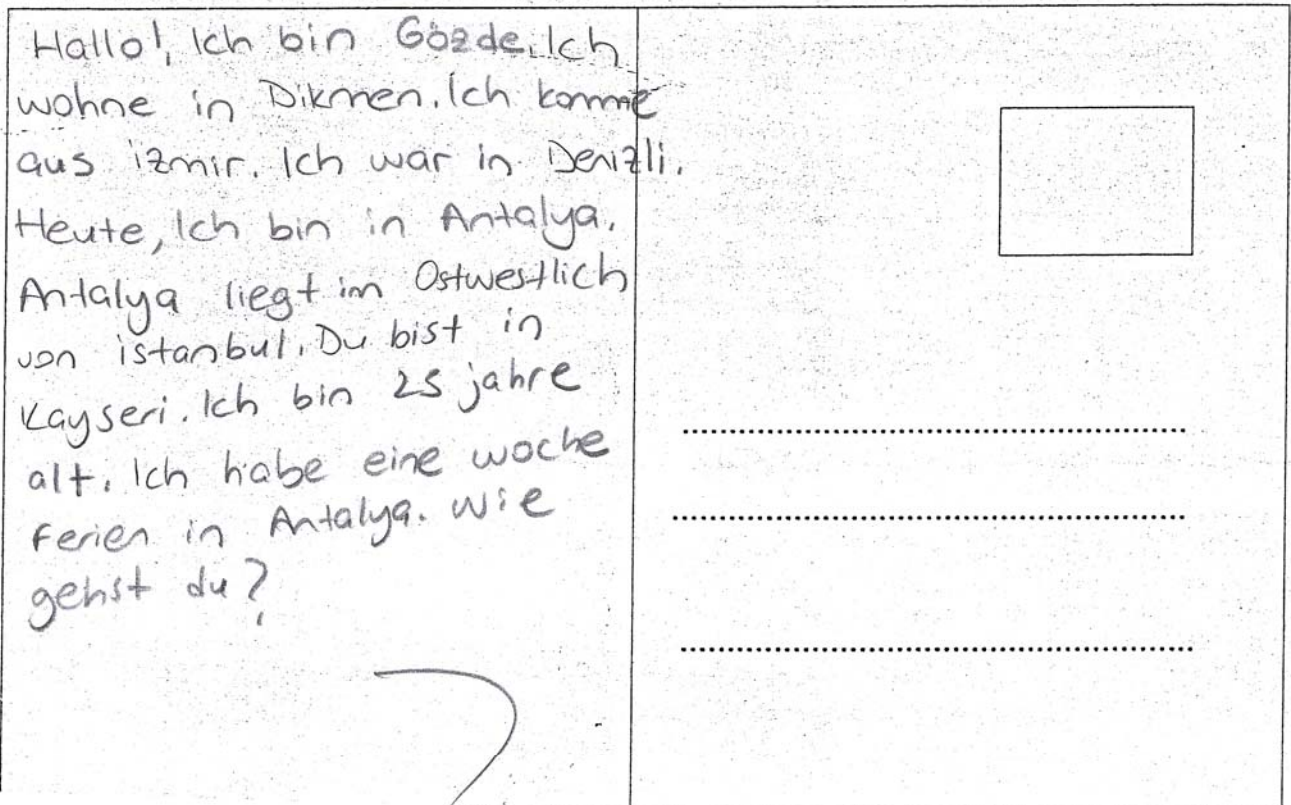 Hallo!, Ich bin Gözde. Ich
wohne in Dikmen. Ich komme
aus izmir. Ich war in Denizli.
Heute, Ich bin in Antalya.
Antalya liegt im Ostwestlich
von istanbul. Du bist in
Kayseri. Ich bin 25 jahre
alt. Ich habe eine woche
Ferien in Antalya. Wie
gehst du?